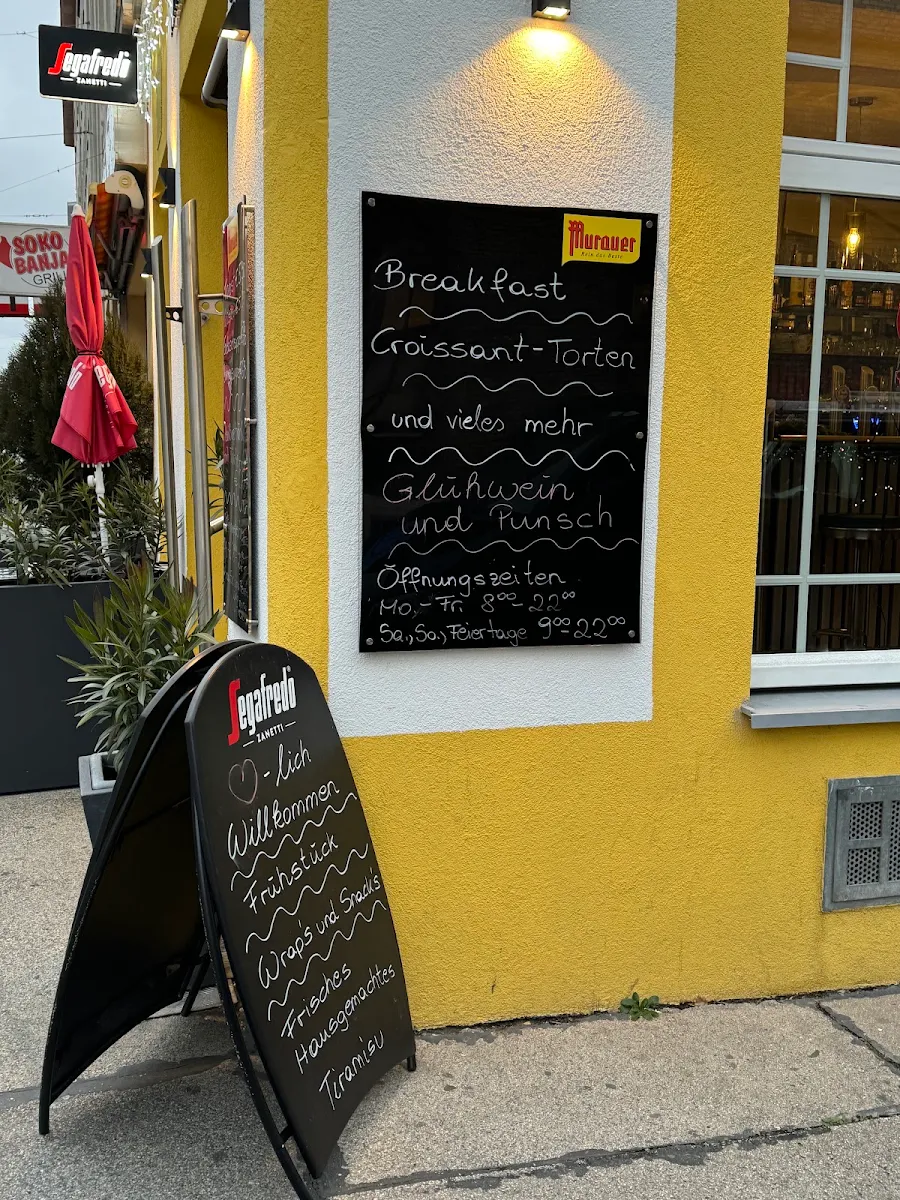 Segafredo
ZANETTI
SOKO
BANJA
GRILL
Murauer
Rein das Beste
Breakfast
Croissant-Torten
und vieles mehr
Glühwein
und Punsch
Öffnungszeiten
Mo.- Fr. 8⁰⁰- 22⁰⁰
Sa., So., Feiertage 9⁰⁰- 22⁰⁰
Segafredo
ZANETTI
♡-lich
Willkommen
Frühstück
Wrap's und Snack's
Frisches
Hausgemachtes
Tiramisu